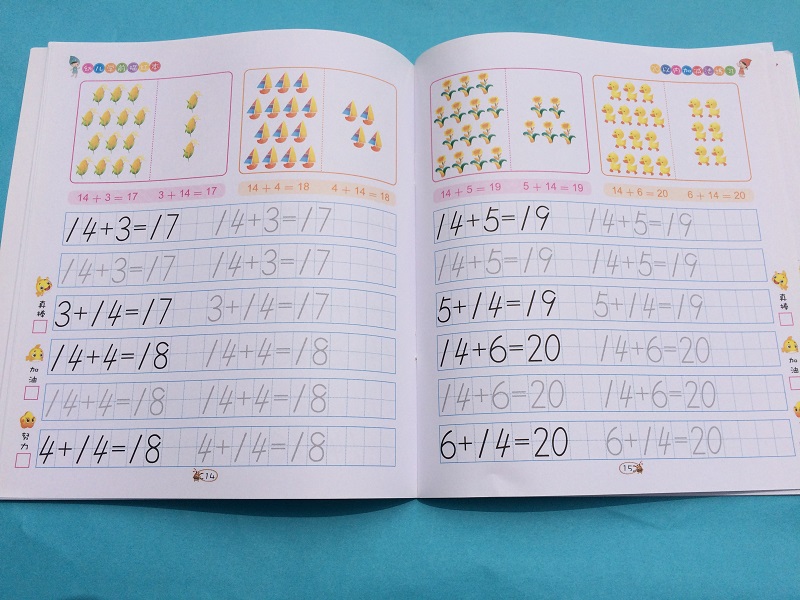 14 + 3 = 17 3 + 14 = 17 14 + 4 = 18 4 + 14 = 18
14+3=17 14+3=17
14+3=17 14+3=17
真棒
3+14=17 3+14=17
14+4=18 14+4=18
加油
14+4=18 14+4=18
努力
4+14=18 4+14=18
14
14 + 5 = 19 5 + 14 = 19 14 + 6 = 20 6 + 14 = 20
14+5=19 14+5=19
14+5=19 14+5=19
真棒
5+14=19 5+14=19
14+6=20 14+6=20
加油
14+6=20 14+6=20
6+14=20 6+14=20
15